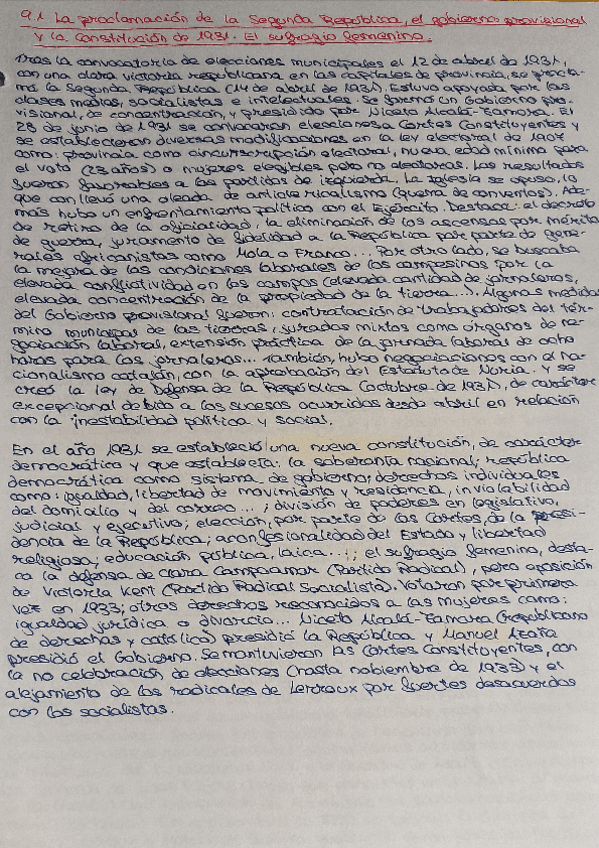 9.1 La proclamación de la Segunda República, el gobierno provisional
y la Constitución de 1931. El sufragio femenino.
Tras la convocatoria de elecciones municipales el 12 de abril de 1931,
con una clara victoria republicana en las capitales de provincia, se procla-
mó la Segunda República (14 de abril de 1931). Estuvo apoyada por las
clases medias, socialistas e intelectuales. Se formó un Gobierno pro-
visional, de concentración, y presidido por Niceto Alcalá-Zamora. El
28 de junio de 1931 se convocaron elecciones a Cortes Constituyentes y
se establecieron diversas modificaciones en la ley electoral de 1907
como: provincia como circunscripción electoral, nueva edad mínima para
el voto (23 años) o mujeres elegibles pero no electoras. Los resultados
fueron favorables a los partidos de izquierda. La Iglesia se opuso, lo
que conllevó una oleada de anticlericalismo (quema de conventos). Ade-
más hubo un enfrentamiento político con el Ejército. Destaca: el decreto
de retiro de la oficialidad, la eliminación de los ascensos por mérito
de guerra, juramento de fidelidad a la República por parte de gene-
rales africanistas como Mola o Franco... Por otro lado, se buscaba
la mejora de las condiciones laborales de los campesinos por la
elevada conflictividad en los campos (elevada cantidad de jornaleros,
elevada concentración de la propiedad de la tierra...). Algunas medidas
del Gobierno provisional fueron: contratación de trabajadores del tér-
mino municipal de las tierras, jurados mixtos como órganos de ne-
gociación laboral, extensión práctica de la jornada laboral de ocho
horas para los jornaleros... También, hubo negociaciones con el na-
cionalismo catalán, con la aprobación del Estatuto de Nuria. Y se
creó la ley de Defensa de la República (octubre de 1931), de carácter
excepcional debido a los sucesos ocurridos desde abril en relación
con la inestabilidad política y social.
En el año 1931 se estableció una nueva constitución, de carácter
democrático y que establecía: la soberanía nacional; república
democrática como sistema de gobierno; derechos individuales
como: igualdad, libertad de movimiento y residencia, inviolabilidad
del domicilio y del correo...; división de poderes en legislativo,
judicial y ejecutivo; elección, por parte de las Cortes, de la Presi-
dencia de la República; aconfesionalidad del Estado y libertad
religiosa; educación pública, laica...; el sufragio femenino, desta-
ca la defensa de Clara Campoamor (Partido Radical), pero oposición
de Victoria Kent (Partido Radical Socialista). Votaron por primera
vez en 1933; otros derechos reconocidos a las mujeres como:
igualdad jurídica o divorcio... Niceto Alcalá-Zamora (republicano
de derechas y católico) presidió la República y Manuel Azaña
presidió el Gobierno. Se mantuvieron las Cortes Constituyentes, con
la no celebración de elecciones (hasta nobiembre de 1933) y el
alejamiento de los radicales de Lerroux por fuertes desacuerdos
con los socialistas.